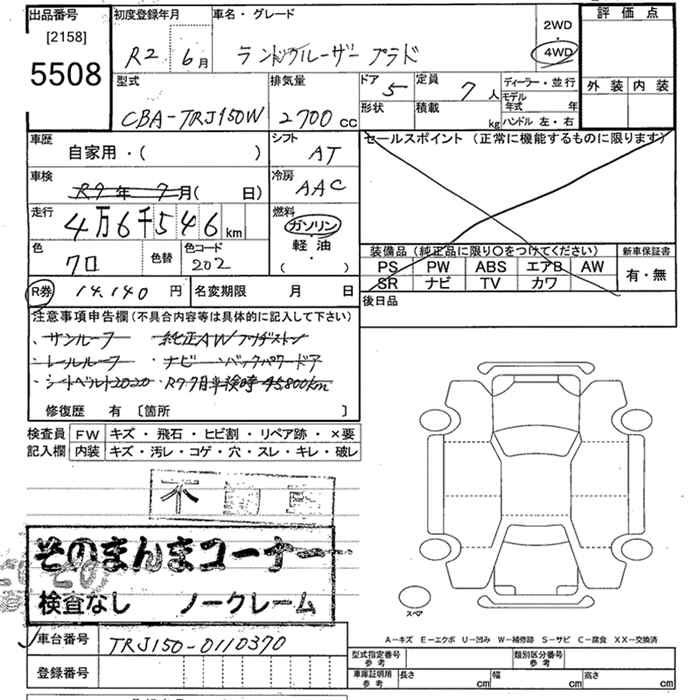 出品番号 初度登録年月 車名・グレード 2WD 評価点
[2158] R2 6月 ランドクルーザー プラド ・
5508 4WD
型式 排気量 ドア 5 定員 7人 ディーラー・並行 外装 内装
CBA-TRJ150W 2700cc 形状 積載 kg モデル年式 年
ハンドル 左・右
車歴 自家用・( ) シフト AT セールスポイント (正常に機能するものに限ります)
車検 R7年7月( 日) 冷房 AAC
走行 4万6千546km 燃料 ガソリン
・
軽油
( )
色 クロ 色替 色コード 202
装備品(純正品に限り○をつけてください) 新車保証書
PS PW ABS エアB AW 有・無
SR ナビ TV カワ
R券 14,140円 名変期限 月 日 後日品
注意事項申告欄(不具合内容等は具体的に記入して下さい)
・サンルーフ 純正AW ブリヂストン
・レールルーフ ナビ バックパワードア
・シートベルト2020 R7.7月車検時 45800km
修復歴 有 [箇所 ]
検査員 FW キズ・飛石・ヒビ割・リペア跡・×要
記入欄 内装 キズ・汚レ・コゲ・穴・スレ・キレ・破レ
そのまんまコーナー
検査なし ノークレーム
スペア
A－キズ E－エクボ U－凹み W－補修跡 S－サビ C－腐食 XX－交換済
車台番号 TRJ150-0110370
登録番号
型式指定番号 参考 類別区分番号 参考
車庫証明用 参考 長さ cm 幅 cm 高さ cm